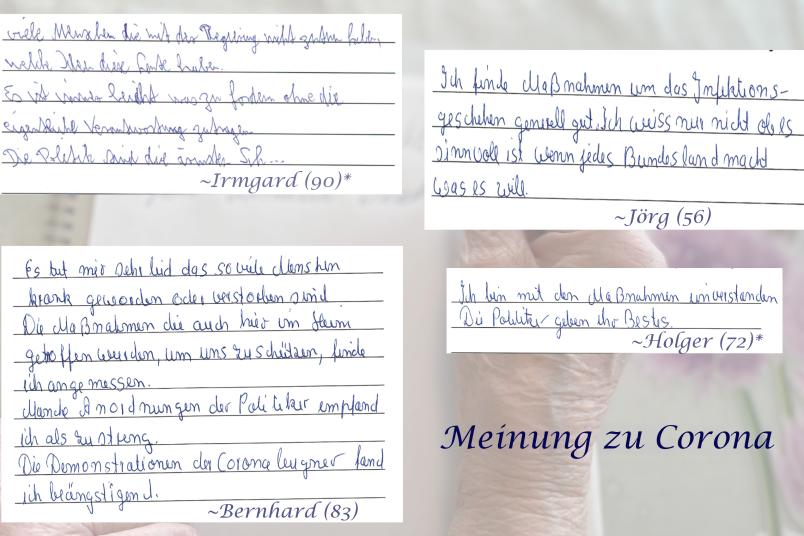 viele Menschen die mit der Regierung nicht zufrieden,
welche Ideen diese Leute haben.
Es ist immer leicht was zu fordern ohne die
eigentliche Verantwortung zu tragen
Die Politik sind die ärmsten Sch...
~Irmgard (90)*
Ich finde Maßnahmen um das Infektions-
geschehen generell gut. Ich weiss nur nicht ob es
sinnvoll ist wenn jedes Bundesland macht
was es will.
~Jörg (56)
Es tut mir sehr leid das so viele Menshen
krank geworden oder verstorben sind
Die Maßnahmen die auch hier im Heim
getroffen wurden, um uns zu schützen, finde
ich angemessen.
Manche Anordnungen der Politiker empfand
ich als zu streng.
Die Demonstrationen der Corona leugner fand
ich beängstigend.
~Bernhard (83)
Ich bin mit den Maßnahmen einverstanden
Die Politiker geben ihr Bestes.
~Holger (72)*
Meinung zu Corona